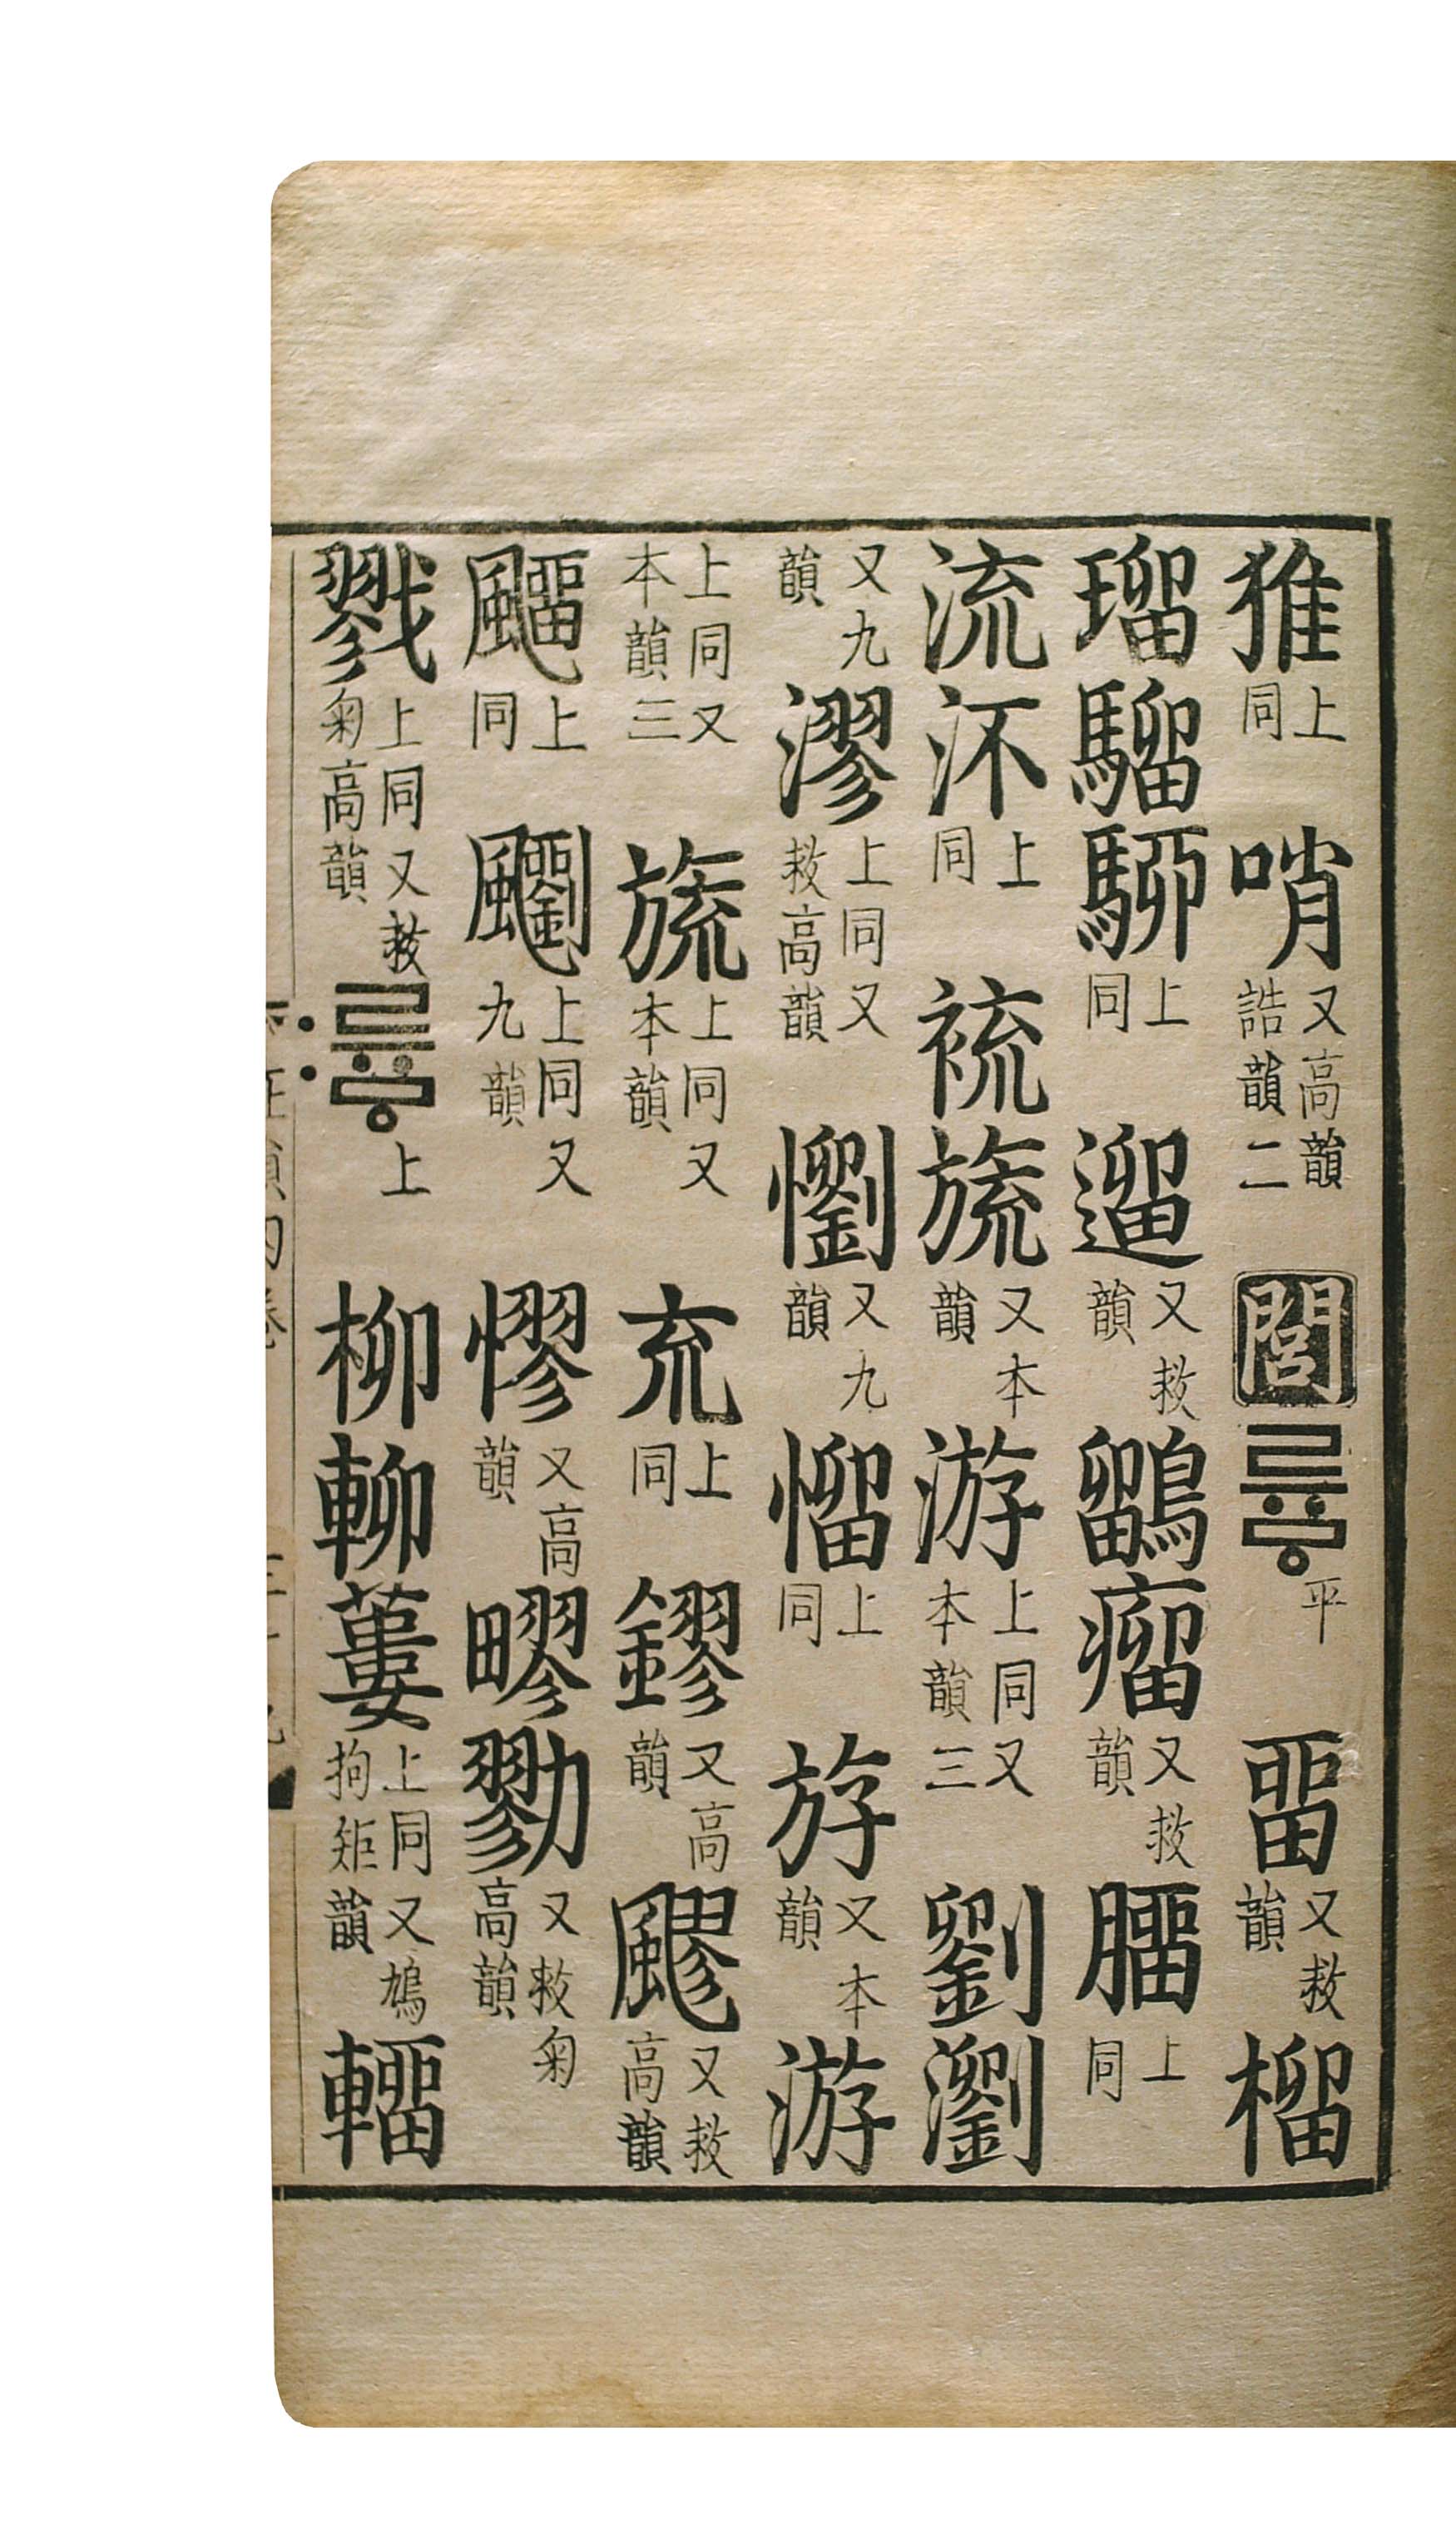 猚上同哨又高韻誥韻二閭류ᇢ平畱又救韻榴
瑠騮駵上同遛又救韻鶹瘤又救韻上同
流㳅上同裗旒又本韻游上同又本韻三劉瀏
又九韻漻上同又救高韻懰又九韻上同斿又本韻游
上同又本韻三旒上同又本韻㐬上同鏐又高韻飂又救高韻
飅上同飀上同又九韻憀又高韻疁勠又救菊高韻
戮上同又救菊高韻류ᇢ〯上柳蔞上同又鳩拘矩韻